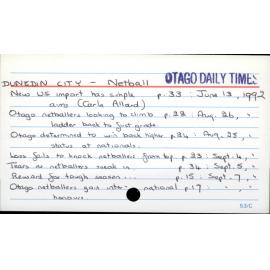 DUNEDIN CITY - Netball
OTAGO DAILY TIMES
New US import has simple p.33 : June 13, 1992
aims (Carla Allard)
Otago netballers looking to climb p.28 : Aug. 26, "
ladder back to first grade.
Otago determined to win back higher p.24 : Aug. 28, "
status at nationals.
Loss fails to knock netballers from top p.23 : Sept. 4, "
Tears as netballers sneak in p.34 : Sept. 5, "
Reward for tough season ... p.15 : Sept. 7, "
Otago netballers gain inter-national p.17 : "
honours.
53/C